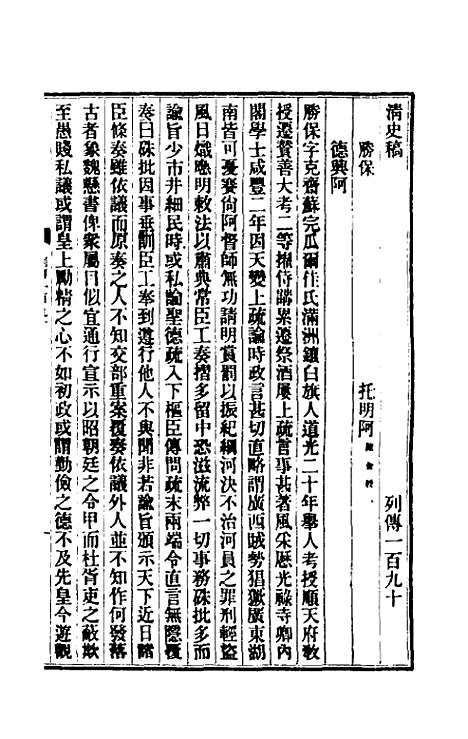 清史稿 列傳一百九十
勝保 托明阿
德興阿
勝保字克齋蘇完瓜爾佳氏滿洲鑲白旗人道光二十年舉人考授順天府敎
授遷贊善大考二等擢侍講累遷祭酒屢上疏言事甚著風采歷光祿寺卿內
閣學士咸豐二年因天變上疏論時政言甚切直略謂廣西賊勢猖獗廣東湖
南皆可憂賽尙阿督師無功請明賞罰以振紀綱河決不治河員之罪刑輕盜
風日熾應明敕法以肅典常臣工奏摺多留中恐滋流弊一切事務硃批多而
諭旨少市井細民時或私論聖德疏入下樞臣傳問疏末兩端令直言無隱覆
奏曰硃批因事垂訓臣工奉到遵行他人不與聞非若諭旨頒示天下近日諸
臣條奏雖依議而原奏之人不知交部重案覆奏依議外人並不知作何發落
古者象魏懸書俾衆屬目似宜通行宣示以昭朝廷之令甲而杜胥吏之蔽欺
至愚賤私議或謂皇上勵精之心不如初政或謂勤儉之德不及先皇今遊觀